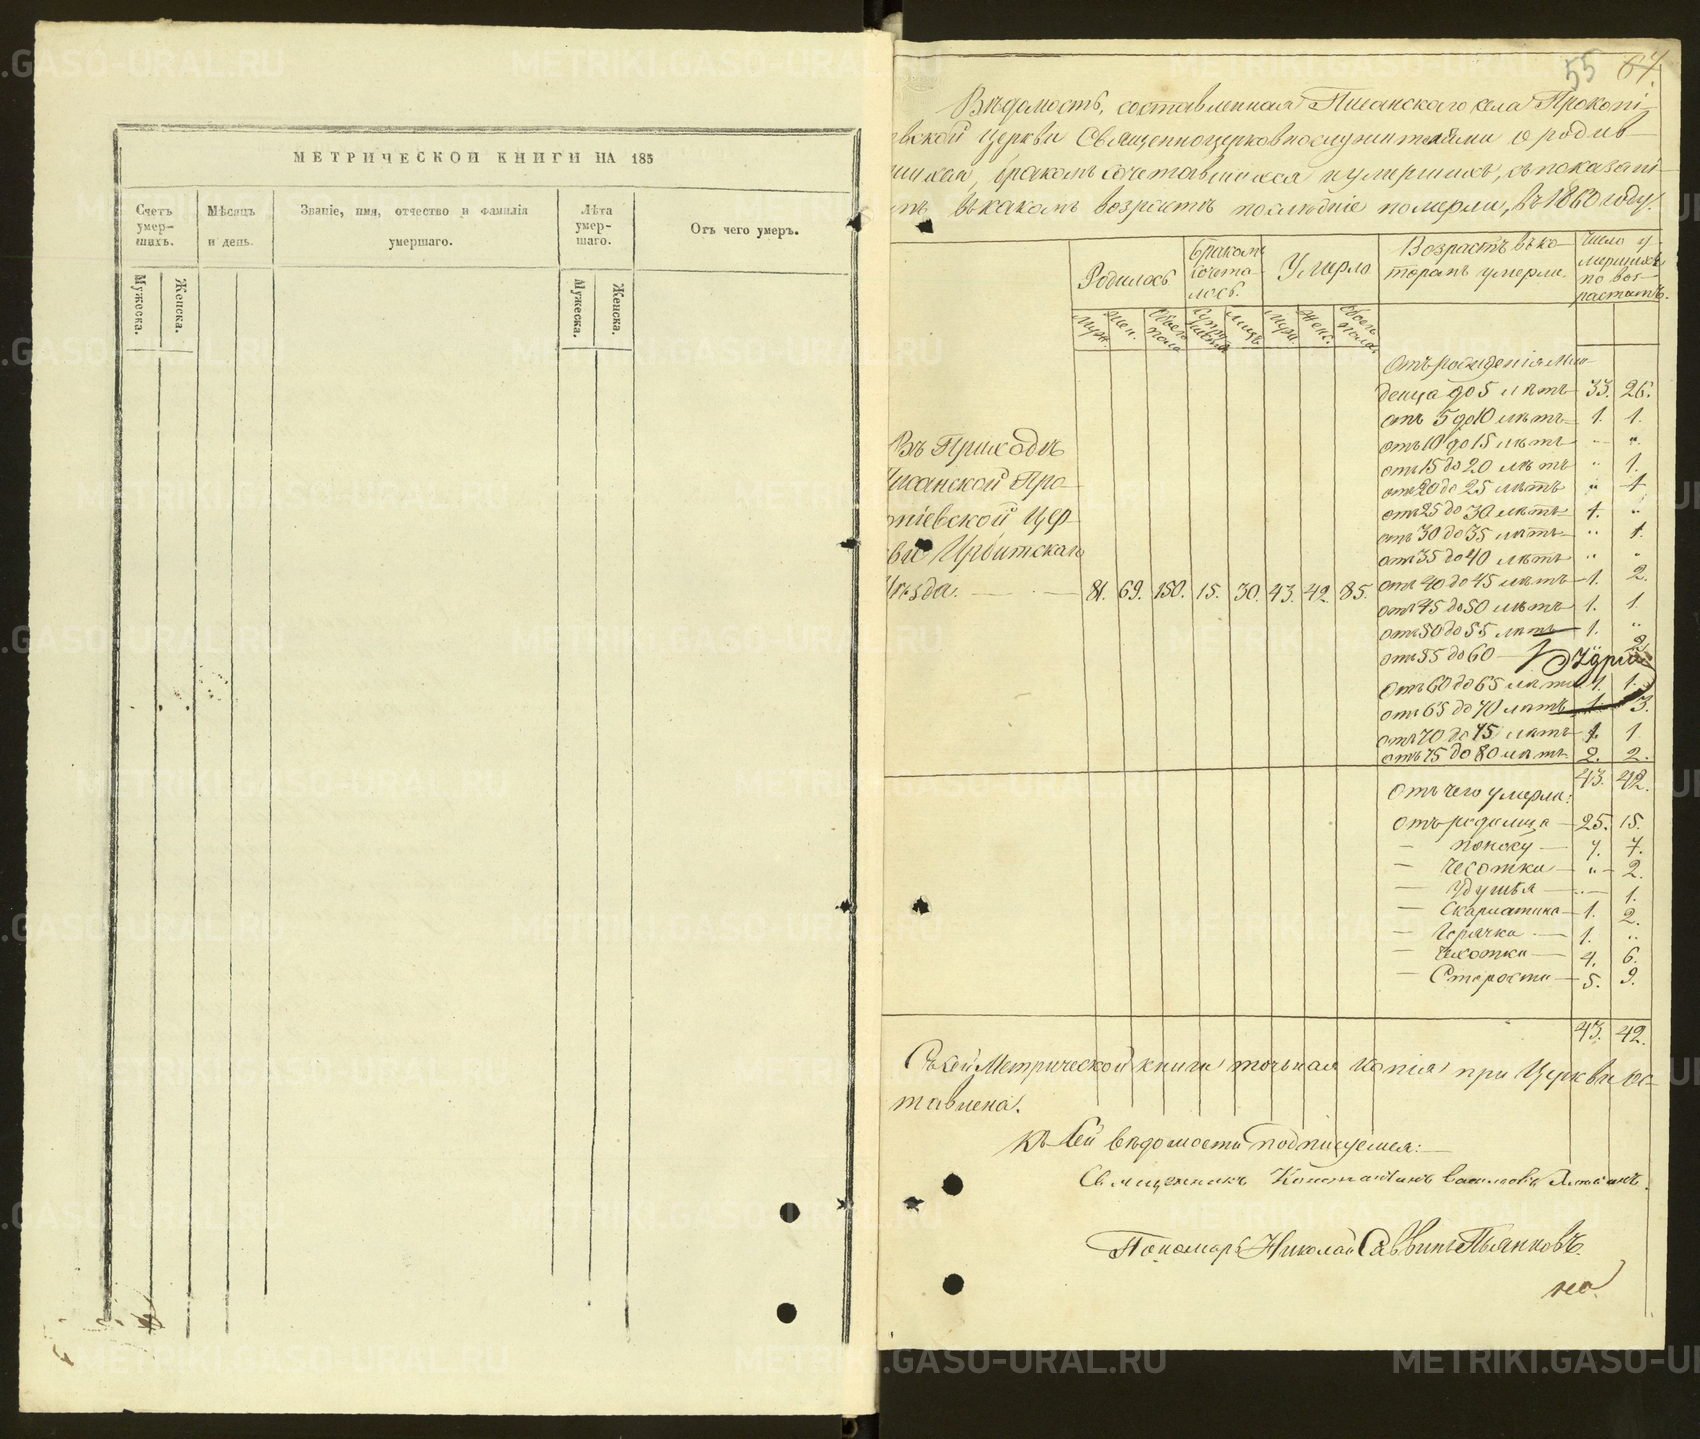 МЕТРИЧЕСКОЙ КНИГИ НА 185
Счетъ умер-шихъ.
Мѣсяцъ и день.
Званіе, имя, отчество и фамилія умершаго.
Лѣта умер-шаго.
Отъ чего умеръ.
Мужеска.
Женска.
Мужеска.
Женска.
55 64.
Вѣдомость, составленная Писанскаго села Прокопі-
евской Церкви Священноцерковнослужителями о родив-
шихся, бракомъ сочетавшихся и умершихъ, съ показані-
въ какомъ возрастѣ послѣдніе померли, въ 1860 году.
Родилось
Бракомъ сочета-лось.
Умерло
Возрастъ въ ко-торомъ умерли.
Число у-мершихъ по воз-растамъ.
Муж.
Жен.
Обоего пола
Супру-
Лицъ
Муж.
Жен.
Обоего пола.
Отъ рожденія мла-
денца до 5 лѣтъ 33. 26.
отъ 5 до 10 лѣтъ 1. 1.
отъ 10 до 15 лѣтъ - "
отъ 15 до 20 лѣтъ " 1.
отъ 20 до 25 лѣтъ " 1
отъ 25 до 30 лѣтъ 1. "
отъ 30 до 35 лѣтъ " 1.
отъ 35 до 40 лѣтъ " "
отъ 40 до 45 лѣтъ 1. 2.
отъ 45 до 50 лѣтъ 1. 1.
отъ 50 до 55 лѣтъ 1. "
отъ 55 до 60
отъ 60 до 65 лѣтъ 1. 1.
отъ 65 до 70 лѣтъ 1. 3.
отъ 70 до 75 лѣтъ 1. 1.
отъ 75 до 80 лѣтъ 2. 2.
Въ Приходѣ
Писанской Про-
копіевской Цер-
кви Ирбитскаго
Уѣзда. 81. 69. 150. 15. 30. 43. 42. 85.
43. 42.
Отъ чего умерли:
Отъ родимца 25. 15.
— поносу 7. 7.
— Чесотки " 2.
— Удушья 1.
— Скарлатина 1. 2.
— Горячки 1. "
— Чахотки 4. 6.
— Старости 5. 9.
43. 42.
Съ сей Метрической книги точьная копія при Церкви ос-
тавлена.
Къ сей вѣдомости подписуемся:
Священникъ Константинъ
Пономарь Николай Саввинъ Пьянковъ.